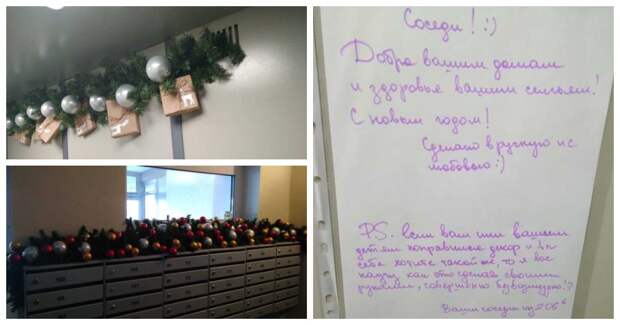 Соседи! :)
Добра вашим домам
и здоровья вашим семьям!
С новым годом!
Сделано вручную и с
любовью :)
PS: если вам или вашим
детям понравился декор и
себе хотите такой же, то я вас
научу, как это сделать своими
руками, совершенно безвозмездно!?
Ваши соседи из